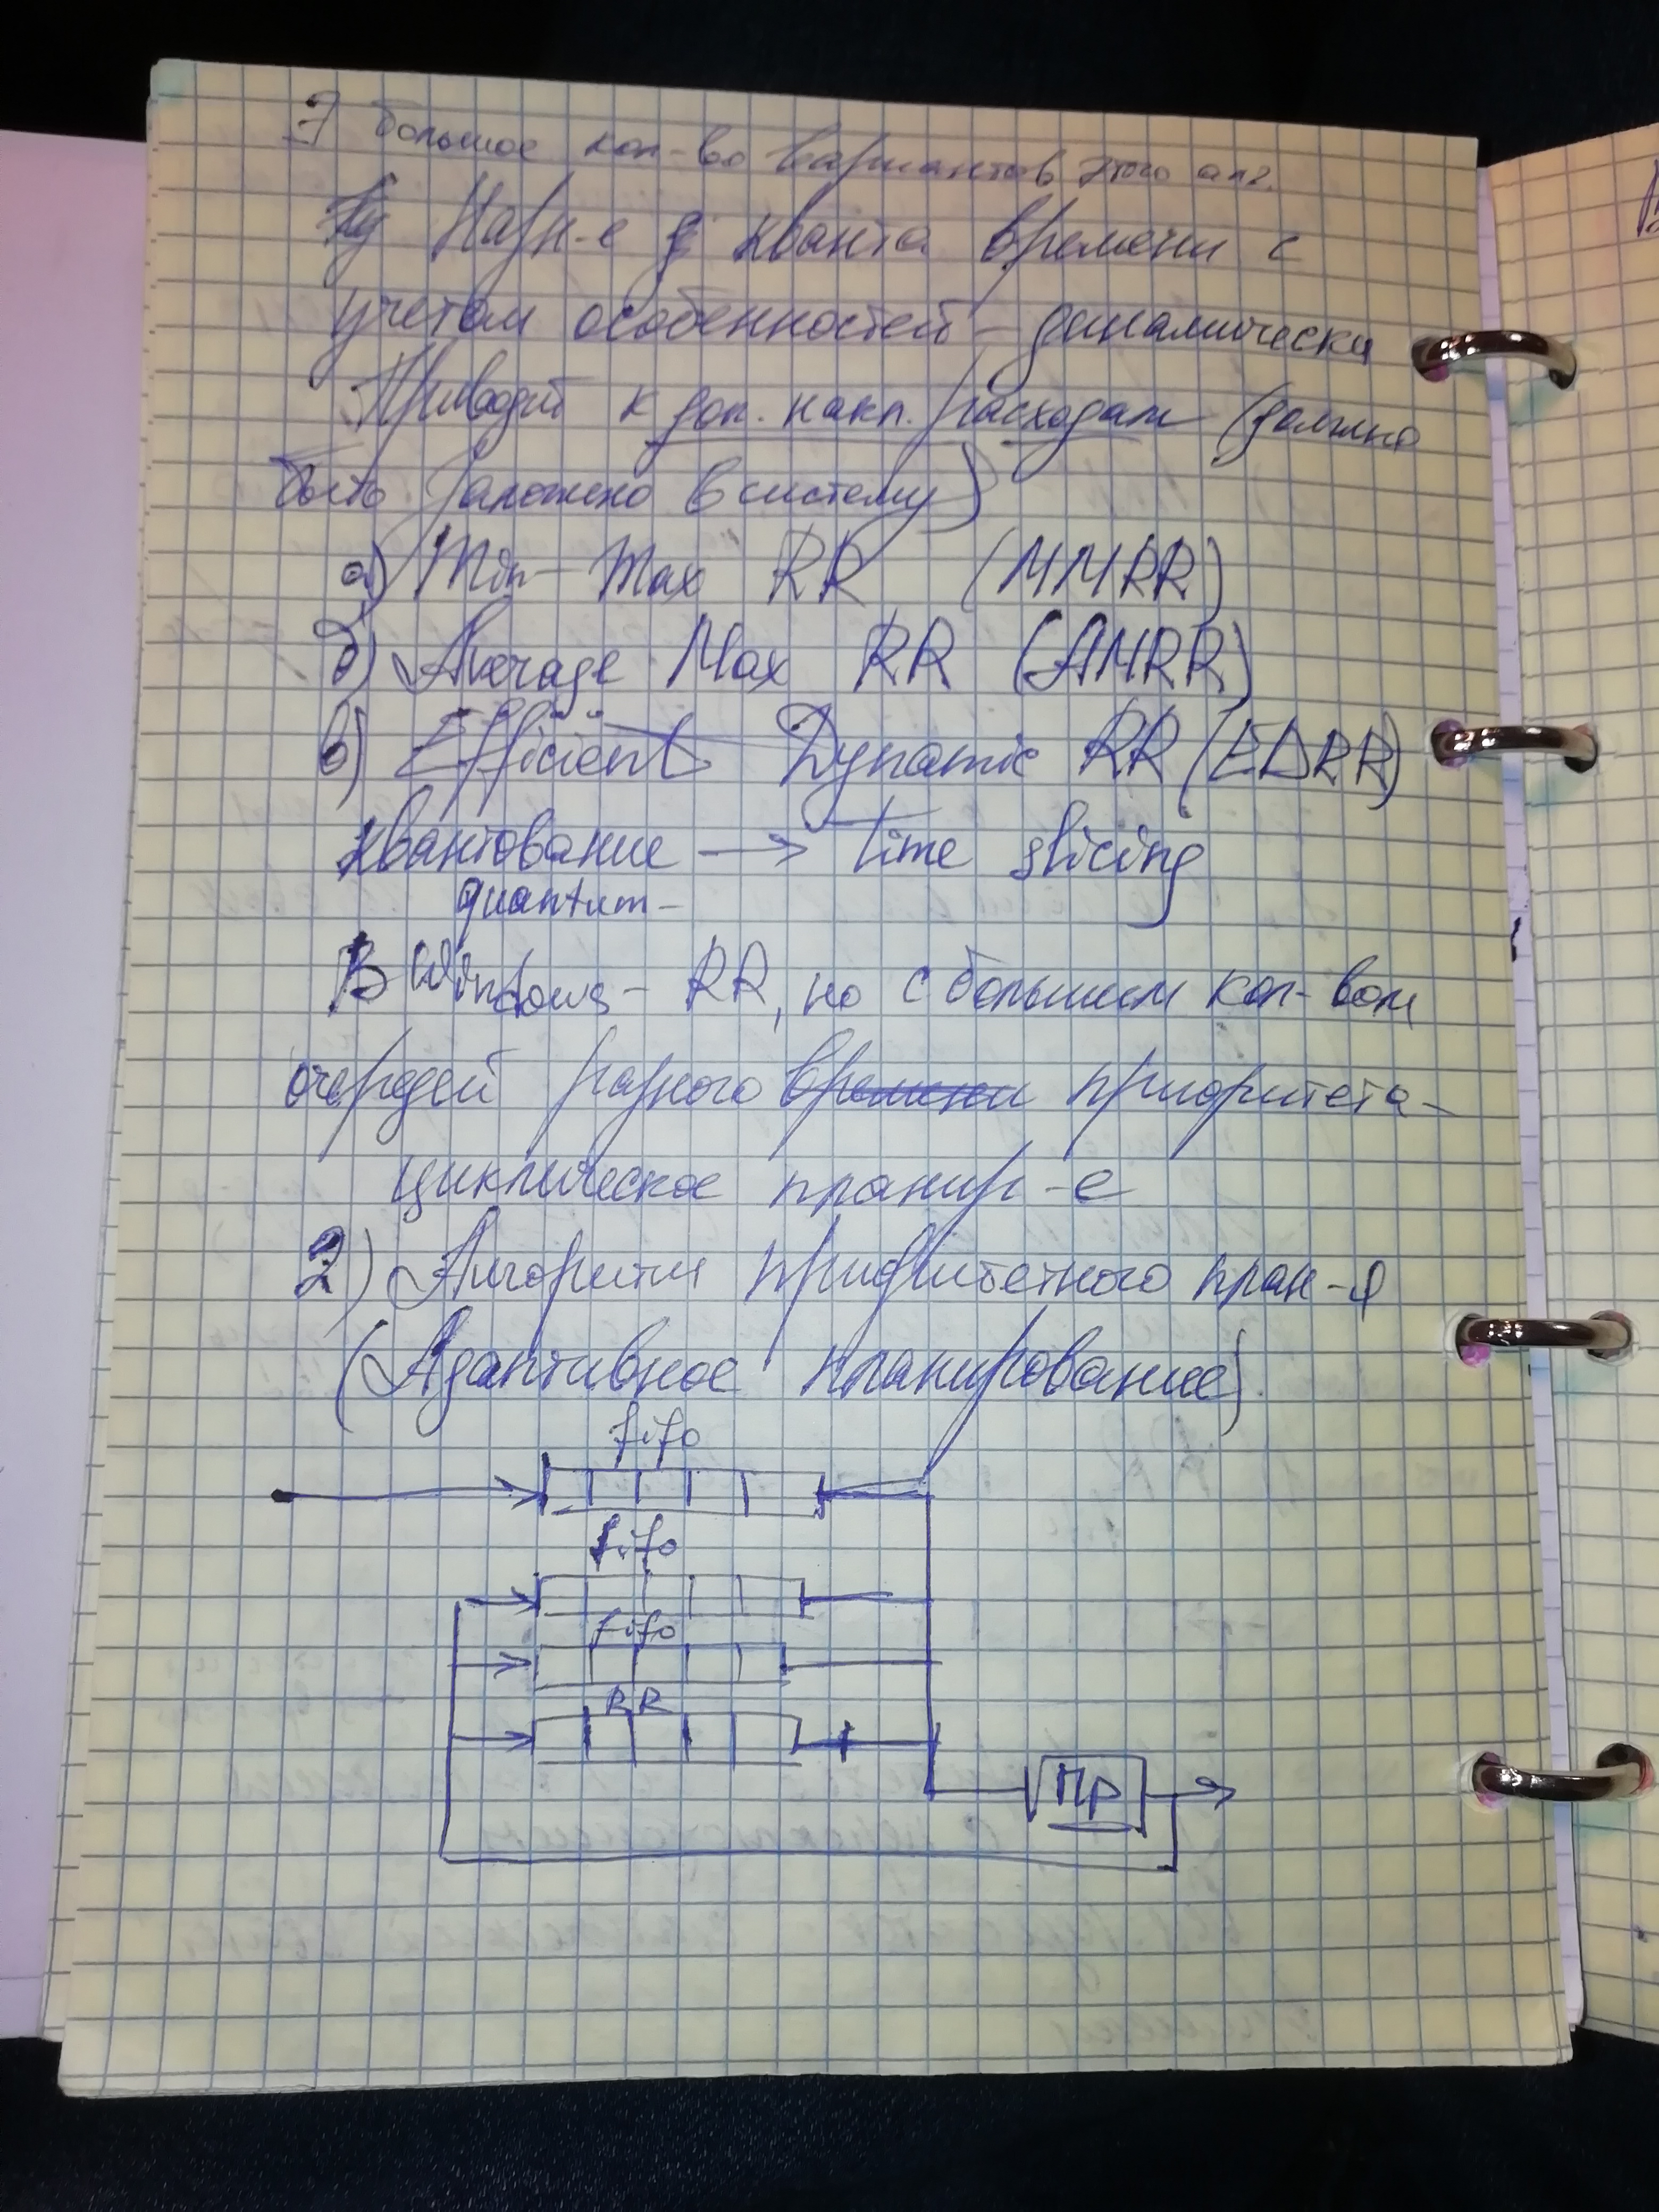 ∃ большое кол-во вариантов этого алг.
Назн-е кванта времени с
учетом особенностей – динамически
Приводит к доп. накл. расходам (должно
быть заложено в систему)
а) Min-Max RR (MMRR)
б) Average Max RR (AMRR)
в) Efficient Dynamic RR (EDRR)
Квантование → Time slicing
quantum-
В Windows – RR, но с большим кол-вом
очередей разного времени приоритета –
циклическое планир-е
2) Алгоритм приоритетного план-я
(Адаптивное планирование).
fifo
fifo
fifo
RR
Пр